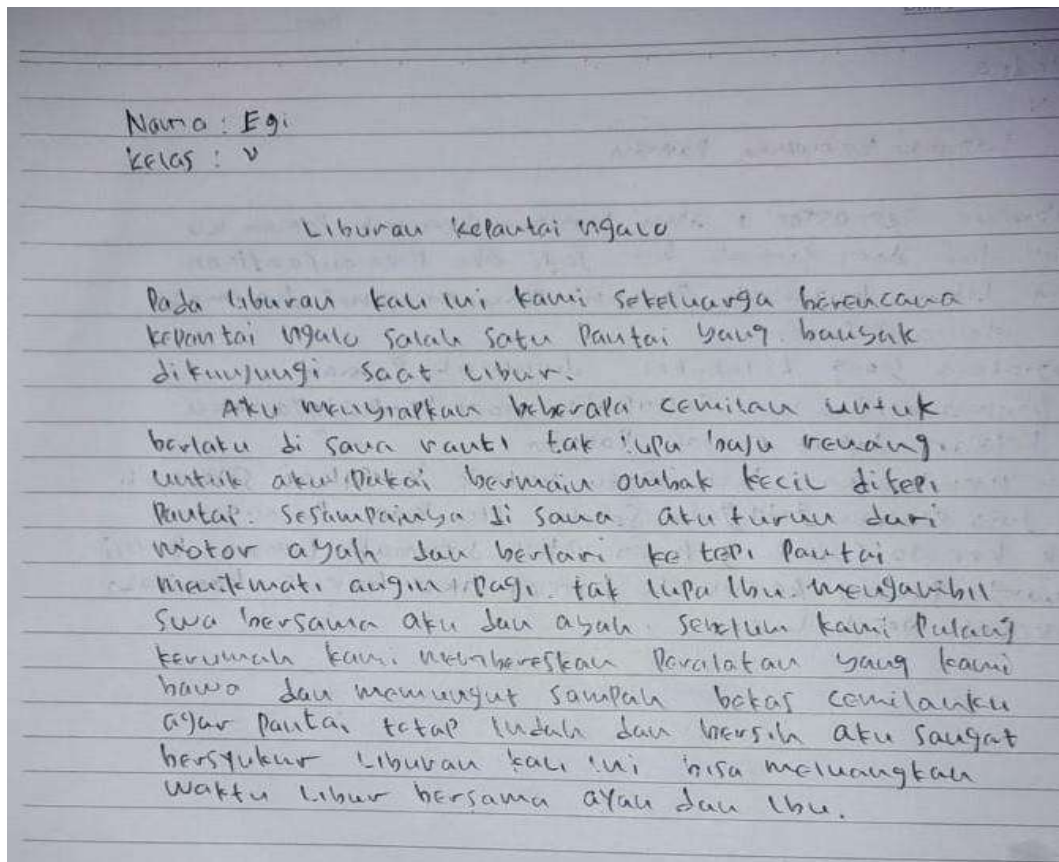 Nama : Egi
Kelas : V
Liburan Kepantai ngalo
Pada liburan kali ini kami sekeluarga berencana
kepantai ngalo salah satu Pantai yang banyak
dikunjungi saat libur.
Aku menyiapkan beberapa cemilan untuk
berlaku di sana nanti tak lupa baju renang
untuk aku Pakai bermain ombak kecil ditepi
Pantai. Sesampainya di sana aku turun dari
motor ayah dan berlari ke tepi Pantai
menikmati angin Pagi. tak lupa Ibu mengambil
swa bersama aku dan ayah. sebelum kami Pulang
kerumah kami membereskan Peralatan yang kami
bawa dan memungut sampah bekas cemilanku
agar Pantai tetap indah dan bersih aku sangat
bersyukur Liburan kali ini bisa meluangkan
waktu Libur bersama ayah dan Ibu.